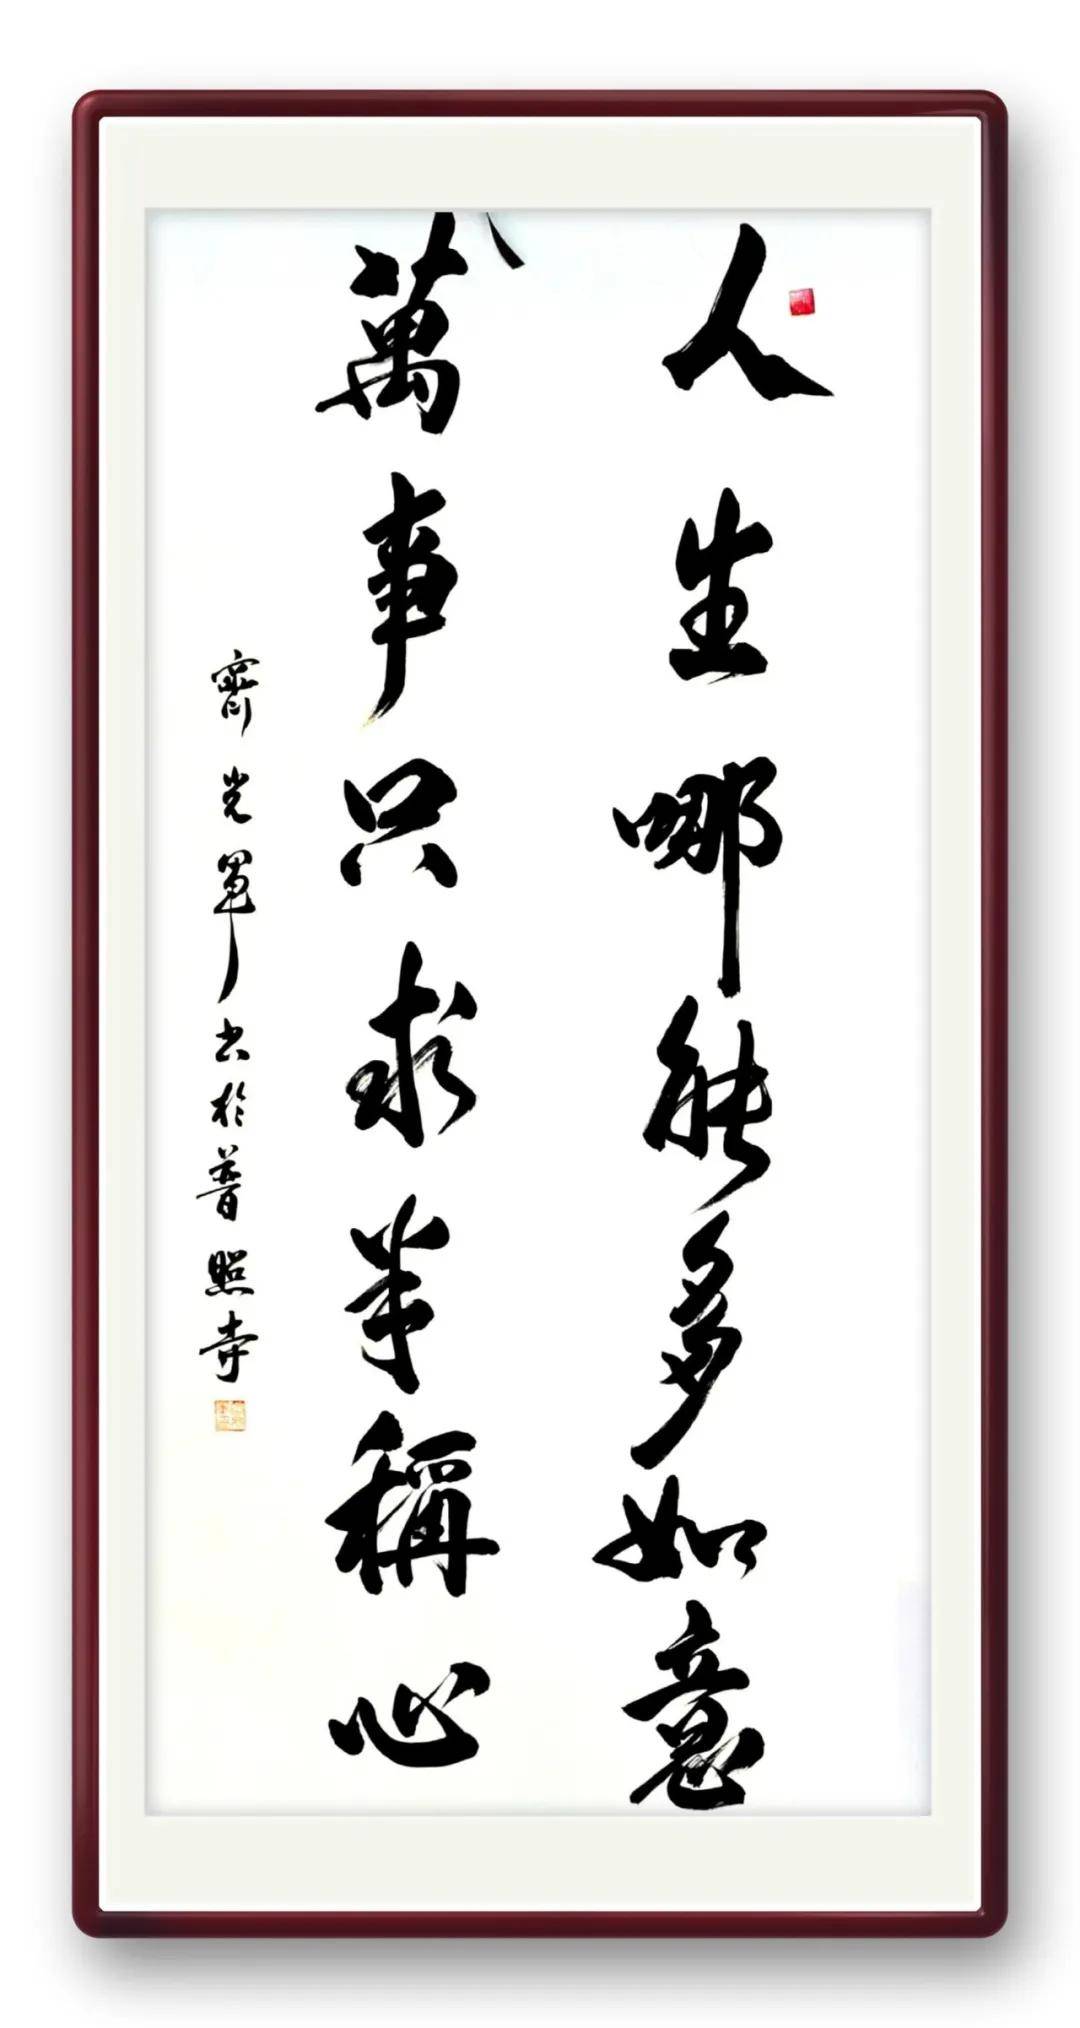 人生哪能多如意
萬事只求半稱心
齊光軍书於普照寺